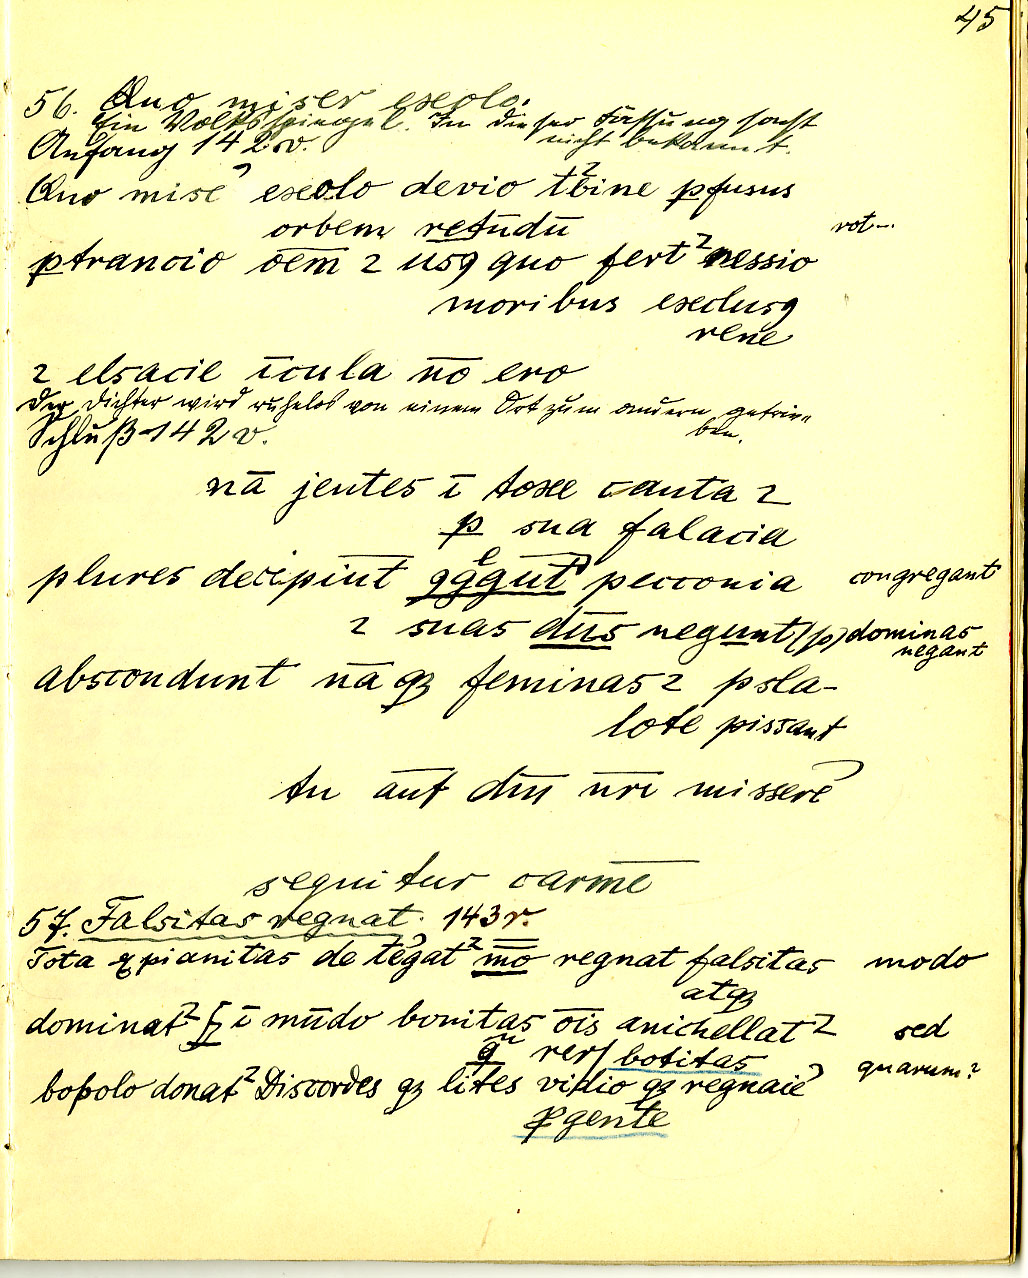 45
56. Quo miser exolo.
Ein Volksspiegel. In dieser Fassung sonst
nicht bekannt.
Anfang 142 v.
Quo mise exolo devio t²bine pfusus
orbem retūdū rot–
ptrancio oēm 2 usq quo fert² nessio
moribus exclusq
rene
2 elsacie īcula nō ero
Der Dichter wird ruhelos von einem Ort zum andern getrie=
ben.
Schluß 142 v.
nā jentes ī tosce canta 2
p sua falacia
plures decipiūt pecconia congregant
2 suas dūs negunt (p) dominas
negant
abscondunt nā qz feminas 2 psla-
lote pissant
tu aut dn̄ nr̄i missere
sequitur carmē
57. Falsitas regnat. 143 r.
Tota xpianitas de tegat² mō regnat falsitas modo
atqz
dominat² ī mūdo bonitas ōis anichellat² sed
rers botitas quarum?
bopolo donat² Discordes qz lites vidio qz regnaie
pgente